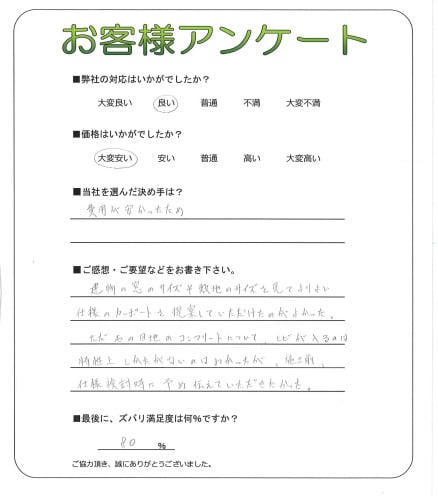 お客様アンケート
■弊社の対応はいかがでしたか?
大変良い 良い 普通 不満 大変不満
■価格はいかがでしたか?
大変安い 安い 普通 高い 大変高い
■当社を選んだ決め手は?
費用が安かったため
■ご感想・ご要望などをお書き下さい。
建物の窓のサイズや敷地のサイズを見てよりよい
仕様のカーポートを提案していただけたのがよかった。
ただ の目地のコンクリートについて、ヒビが入るのは
特性上しかたがないのはわかったが、施工前、
仕様検討時に予め伝えていただきたかった。
■最後に、ズバリ満足度は何%ですか?
80 %
ご協力頂き、誠にありがとうございました。